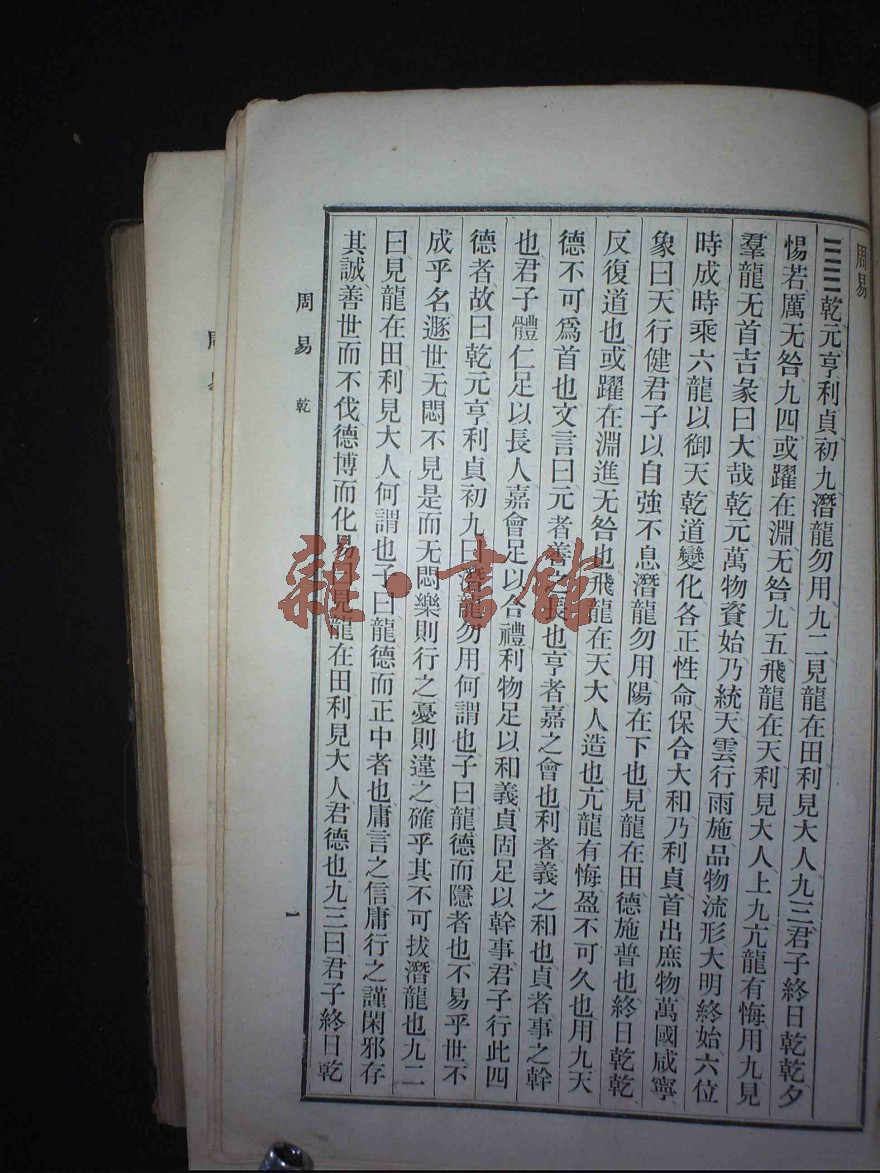 周易
䷀乾元亨利貞初九潛龍勿用九二見龍在田利見大人九三君子終日乾乾夕
惕若厲无咎九四或躍在淵无咎九五飛龍在天利見大人上九亢龍有悔用九見
羣龍无首吉彖曰大哉乾元萬物資始乃統天雲行雨施品物流形大明終始六位
時成時乘六龍以御天乾道變化各正性命保合大和乃利貞首出庶物萬國咸寧
象曰天行健君子以自強不息潛龍勿用陽在下也見龍在田德施普也終日乾乾
反復道也或躍在淵進无咎也飛龍在天大人造也亢龍有悔盈不可久也用九天
德不可為首也文言曰元者善之長也亨者嘉之會也利者義之和也貞者事之幹
也君子體仁足以長人嘉會足以合禮利物足以和義貞固足以幹事君子行此四
德者故曰乾元亨利貞初九曰潛龍勿用何謂也子曰龍德而隱者也不易乎世不
成乎名遯世无悶不見是而无悶樂則行之憂則違之確乎其不可拔潛龍也九二
曰見龍在田利見大人何謂也子曰龍德而正中者也庸言之信庸行之謹閑邪存
其誠善世而不伐德博而化易曰見龍在田利見大人君德也九三曰君子終日乾
周易 乾
一
周易
雜·書館